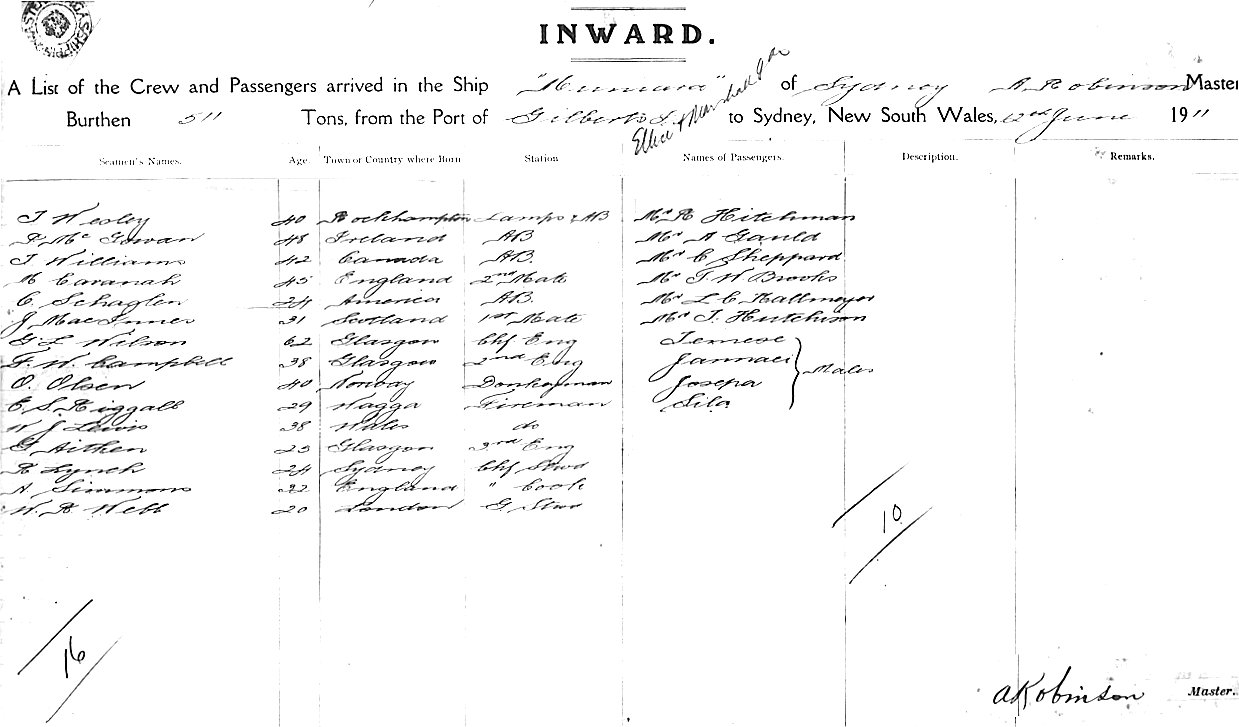 INWARD.
A List of the Crew and Passengers arrived in the Ship "Kumara" of Sydney A Robinson Master
Burthen 511 Tons, from the Port of Gilberts I. Ellice & Marshall Is to Sydney, New South Wales, 12th June 1911
Seamen's Names. Age. Town or Country where Born Station Names of Passengers. Description. Remarks.
T Wesley 40 Rockhampton Lamps & AB Mr R Hitchman
P. Mc Gowan 48 Ireland AB Mr A Gauld
T Williams 42 Canada AB. Mr C Sheppard
M Cavanah 45 England 2nd Mate Mr T. W Brooks
C. Schaglen 24 America AB. Mr L C Hallmeyer
J MacInnes 31 Scotland 1st Mate Mr T. Hutchison
G L Wilson 62 Glasgow Chf Eng
F. W. Campbell 38 Glasgow 2nd Eng Males
O. Olsen 40 Norway Donkeyman Josepa
E S. Riggall 29 Wagga Fireman Sila
W J Lewis 38 Wales do
G Aitken 25 Glasgow 3rd Eng
R Lynch 24 Sydney Chf Stwd
A Simmons 22 England " Cook
W. R Webb 20 London G Stwd
10
16
A Robinson Master.